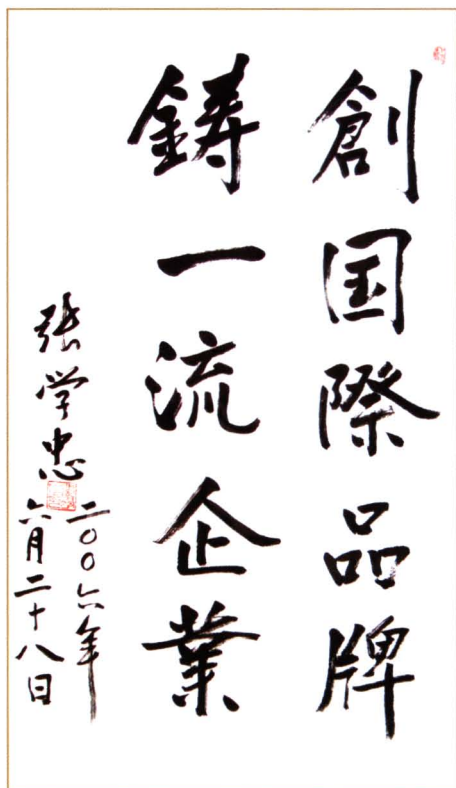 創国際品牌
鋳一流企業
張学忠
二〇〇六年
六月二十八日